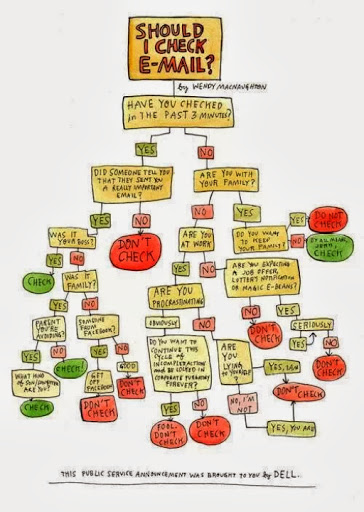 SHOULD
I CHECK
E-MAIL?
by WENDY MACNAUGHTON
HAVE YOU CHECKED
in THE PAST 3 MINUTES?
YES
NO
DID SOMEONE TELL YOU
THAT THEY SENT YOU
A REALLY IMPORTANT
EMAIL?
ARE YOU WITH
YOUR FAMILY?
YES
NO
NO
YES
WAS IT
YOUR BOSS?
DON'T
CHECK
ARE YOU
AT WORK
DO YOU WANT
TO KEEP
YOUR FAMILY?
YES
DO NOT
CHECK
NO
CHECK
YES
NO
CHECK
WAS IT
FAMILY?
YES
NO
ARE YOU EXPECTING
A JOB OFFER,
LOTTERY NOTIFICATION
OR MAGIC E-BEANS?
YES
NO
ARE YOU
PROCRASTINATING
NO
YES
PARENT
YOU'RE
AVOIDING?
SOMEONE
FROM FACEBOOK?
OBVIOUSLY
NO
DON'T
CHECK
SERIOUSLY
YES
NO
YES
NO
DO YOU WANT TO
CONTINUE THIS
CYCLE OF
AND BE LOCKED IN
CORPORATE PURGATORY
FOREVER?
ARE
YOU
LYING
TO YOURSELF?
YES
NO
WHAT KIND
OF SON/DAUGHTER
ARE YOU?
CHECK!
GET
OFF
FACEBOOK
GOOD
DON'T
CHECK
YES, I AM
DON'T
CHECK
CHECK
DON'T
CHECK
YES
NO
NO, I'M
NOT
DON'T
CHECK
FOOL.
DON'T
CHECK
DON'T
CHECK
YES, YOU ARE
THIS PUBLIC SERVICE ANNOUNCEMENT WAS BROUGHT TO YOU by DELL.